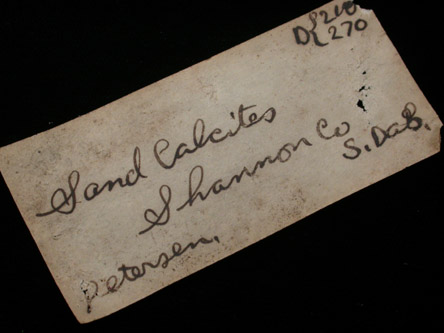 270
Sand Calcites
Shannon Co
S. Dak.
Petersen,